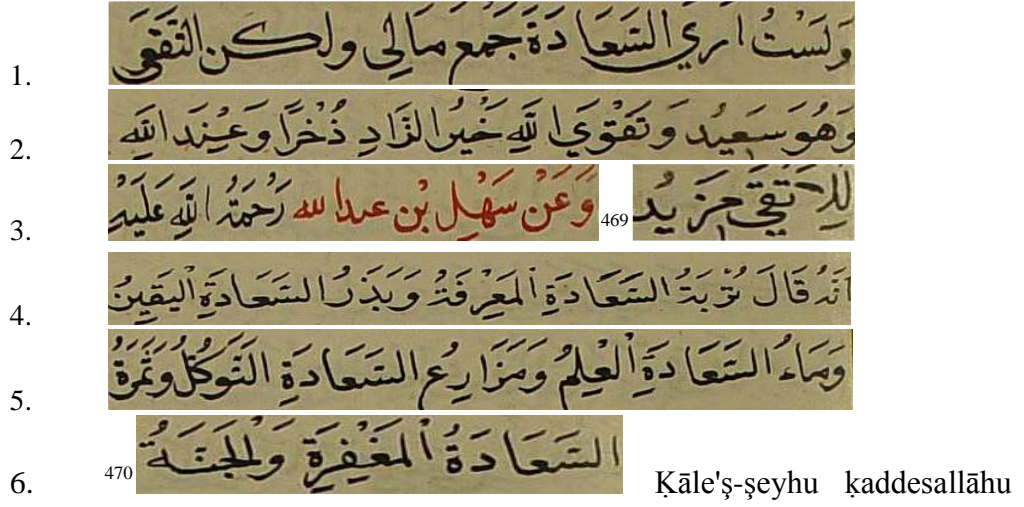 1. وَلَسْتُ اَرَي السَّعَادَةَ جَمْعَ مَالِي ولكن التَّقى
2. وَهُوَ سَعِيد وَتَقْوَي اللّٰهِ خَيْرُ الزَّادِ ذُخْرًا وَعِنْدَ اللّٰه
3. لِلاَتْقَي مَزيدُ 469 وَعَنْ سَهْلِ بْنِ عبدالله رَحْمَةُ اللّٰهِ عَلَيْهِ
4. اَنَّهُ قَالَ تُرْبَةُ السَّعَادَةِ الْمَعْرِفَةُ وَبَذْرُ السَّعَادَةِ الْيَقِينُ
5. وَمَاءُ السَّعَادَةِ الْعِلْمُ وَمَزَارِعُ السَّعَادَةِ التَّوَكُّلُ وَثَمَرَةُ
6. السَّعَادَةُ الْمَغْفِرَةِ وَالْجَنَّةُ 470 Ḳāle'ş-şeyhu ḳaddesallāhu